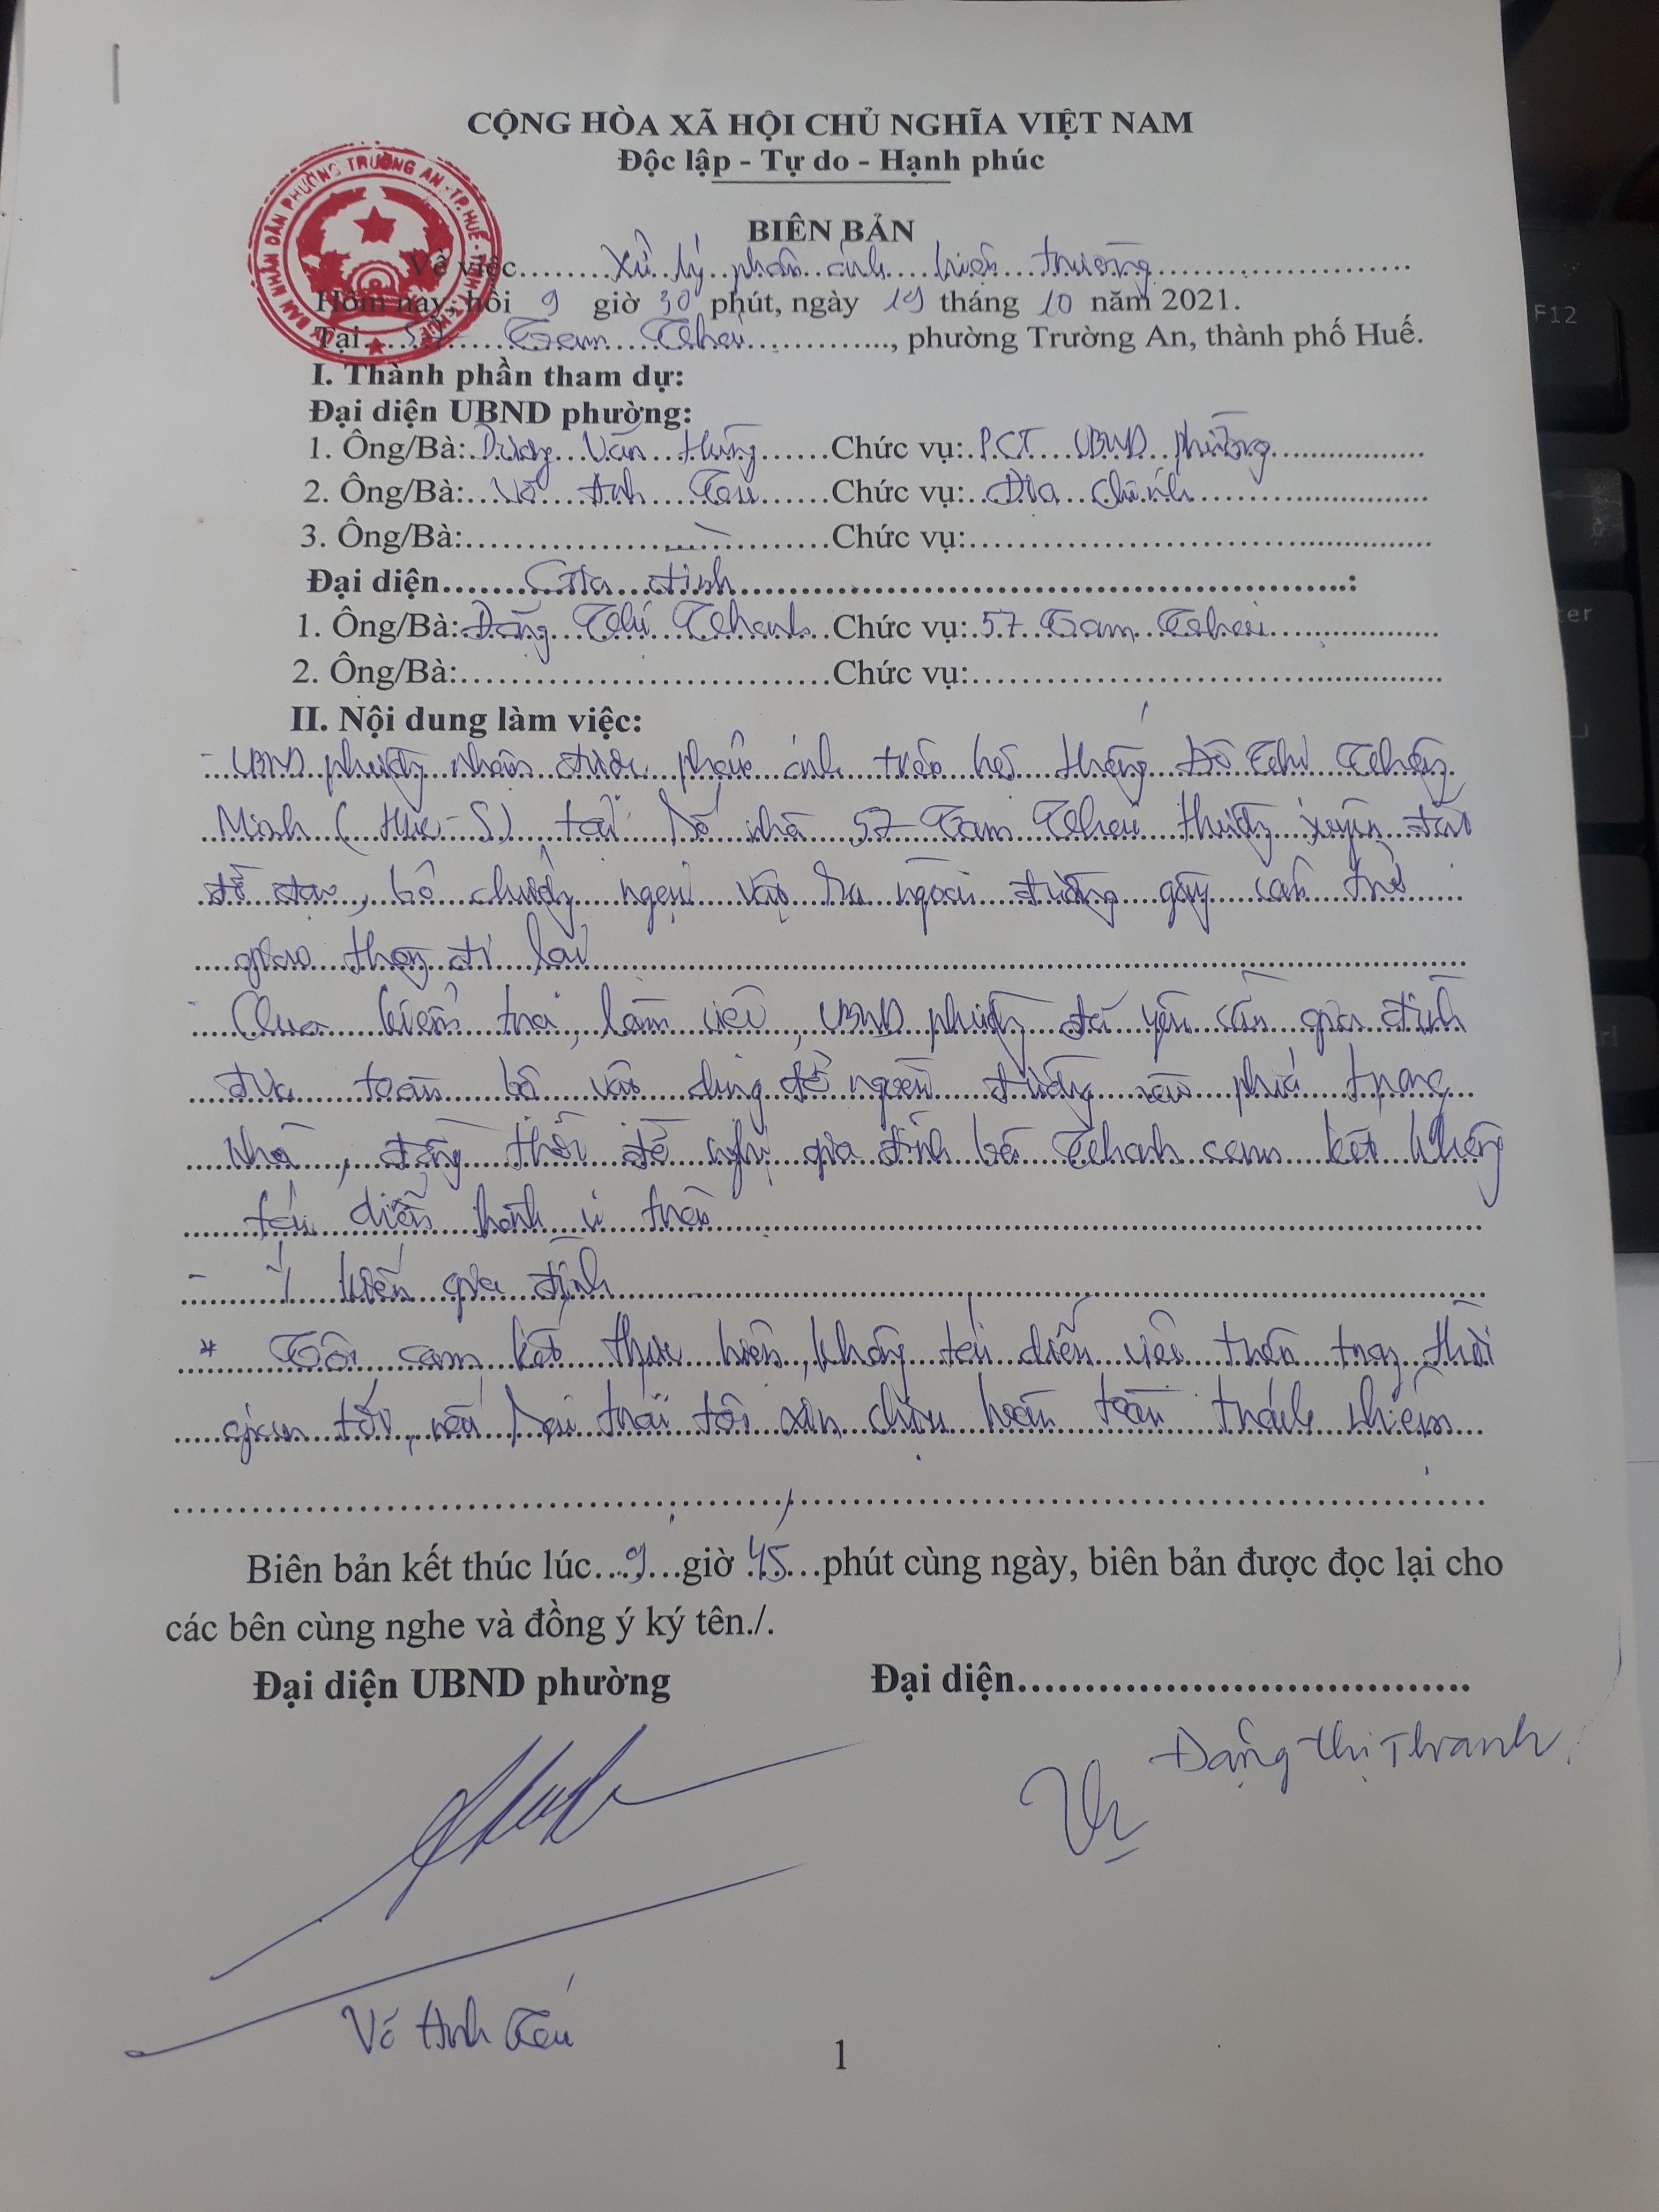 CỘNG HÒA XÃ HỘI CHỦ NGHĨA VIỆT NAM
Độc lập - Tự do - Hạnh phúc
ỦY BAN NHÂN DÂN PHƯỜNG TRƯỜNG AN - TP. HUẾ - TỈNH T.T. HUẾ
BIÊN BẢN
Về việc Xử lý phản ánh hiện trường
Hôm nay, hồi 9 giờ 30 phút, ngày 19 tháng 10 năm 2021.
Tại 57 Tam Thai, phường Trường An, thành phố Huế.
I. Thành phần tham dự:
Đại diện UBND phường:
1. Ông/Bà: Dương Văn Hùng Chức vụ: P.CT UBND phường
2. Ông/Bà: Võ Anh Chức vụ: Địa chính
3. Ông/Bà: Chức vụ:
Đại diện Gia đình :
1. Ông/Bà: Đặng Thị Thanh Chức vụ: 57 Tam Thai
2. Ông/Bà: Chức vụ:
II. Nội dung làm việc:
- UBND phường nhận được phản ánh trên hệ thống Đô Thị Thông
Minh (Hue-S) tại số nhà 57 Tam Thai thường xuyên đặt
để đạc, bỏ chướng ngại vật ra ngoài đường gây cản trở
giao thông đi lại
- Qua kiểm tra, làm việc, UBND phường đã yêu cầu gia đình
đưa toàn bộ vật dụng để ngoài đường vào phía trong
nhà, đồng thời đề nghị gia đình bà Thanh cam kết không
tái diễn hành vi trên
- Ý kiến gia đình
* Tôi cam kết thực hiện, không tái diễn việc trên trong thời
gian tới, nếu sai trái tôi xin chịu hoàn toàn trách nhiệm
Biên bản kết thúc lúc 9 giờ 45 phút cùng ngày, biên bản được đọc lại cho
các bên cùng nghe và đồng ý ký tên./.
Đại diện UBND phường Đại diện
Đặng Thị Thanh
Võ Anh
1